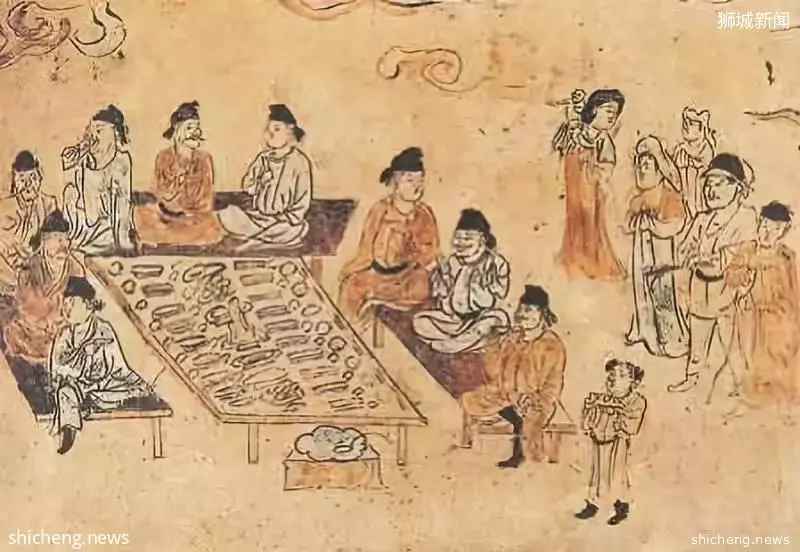 狮城新闻
shicheng.news
shicheng.news